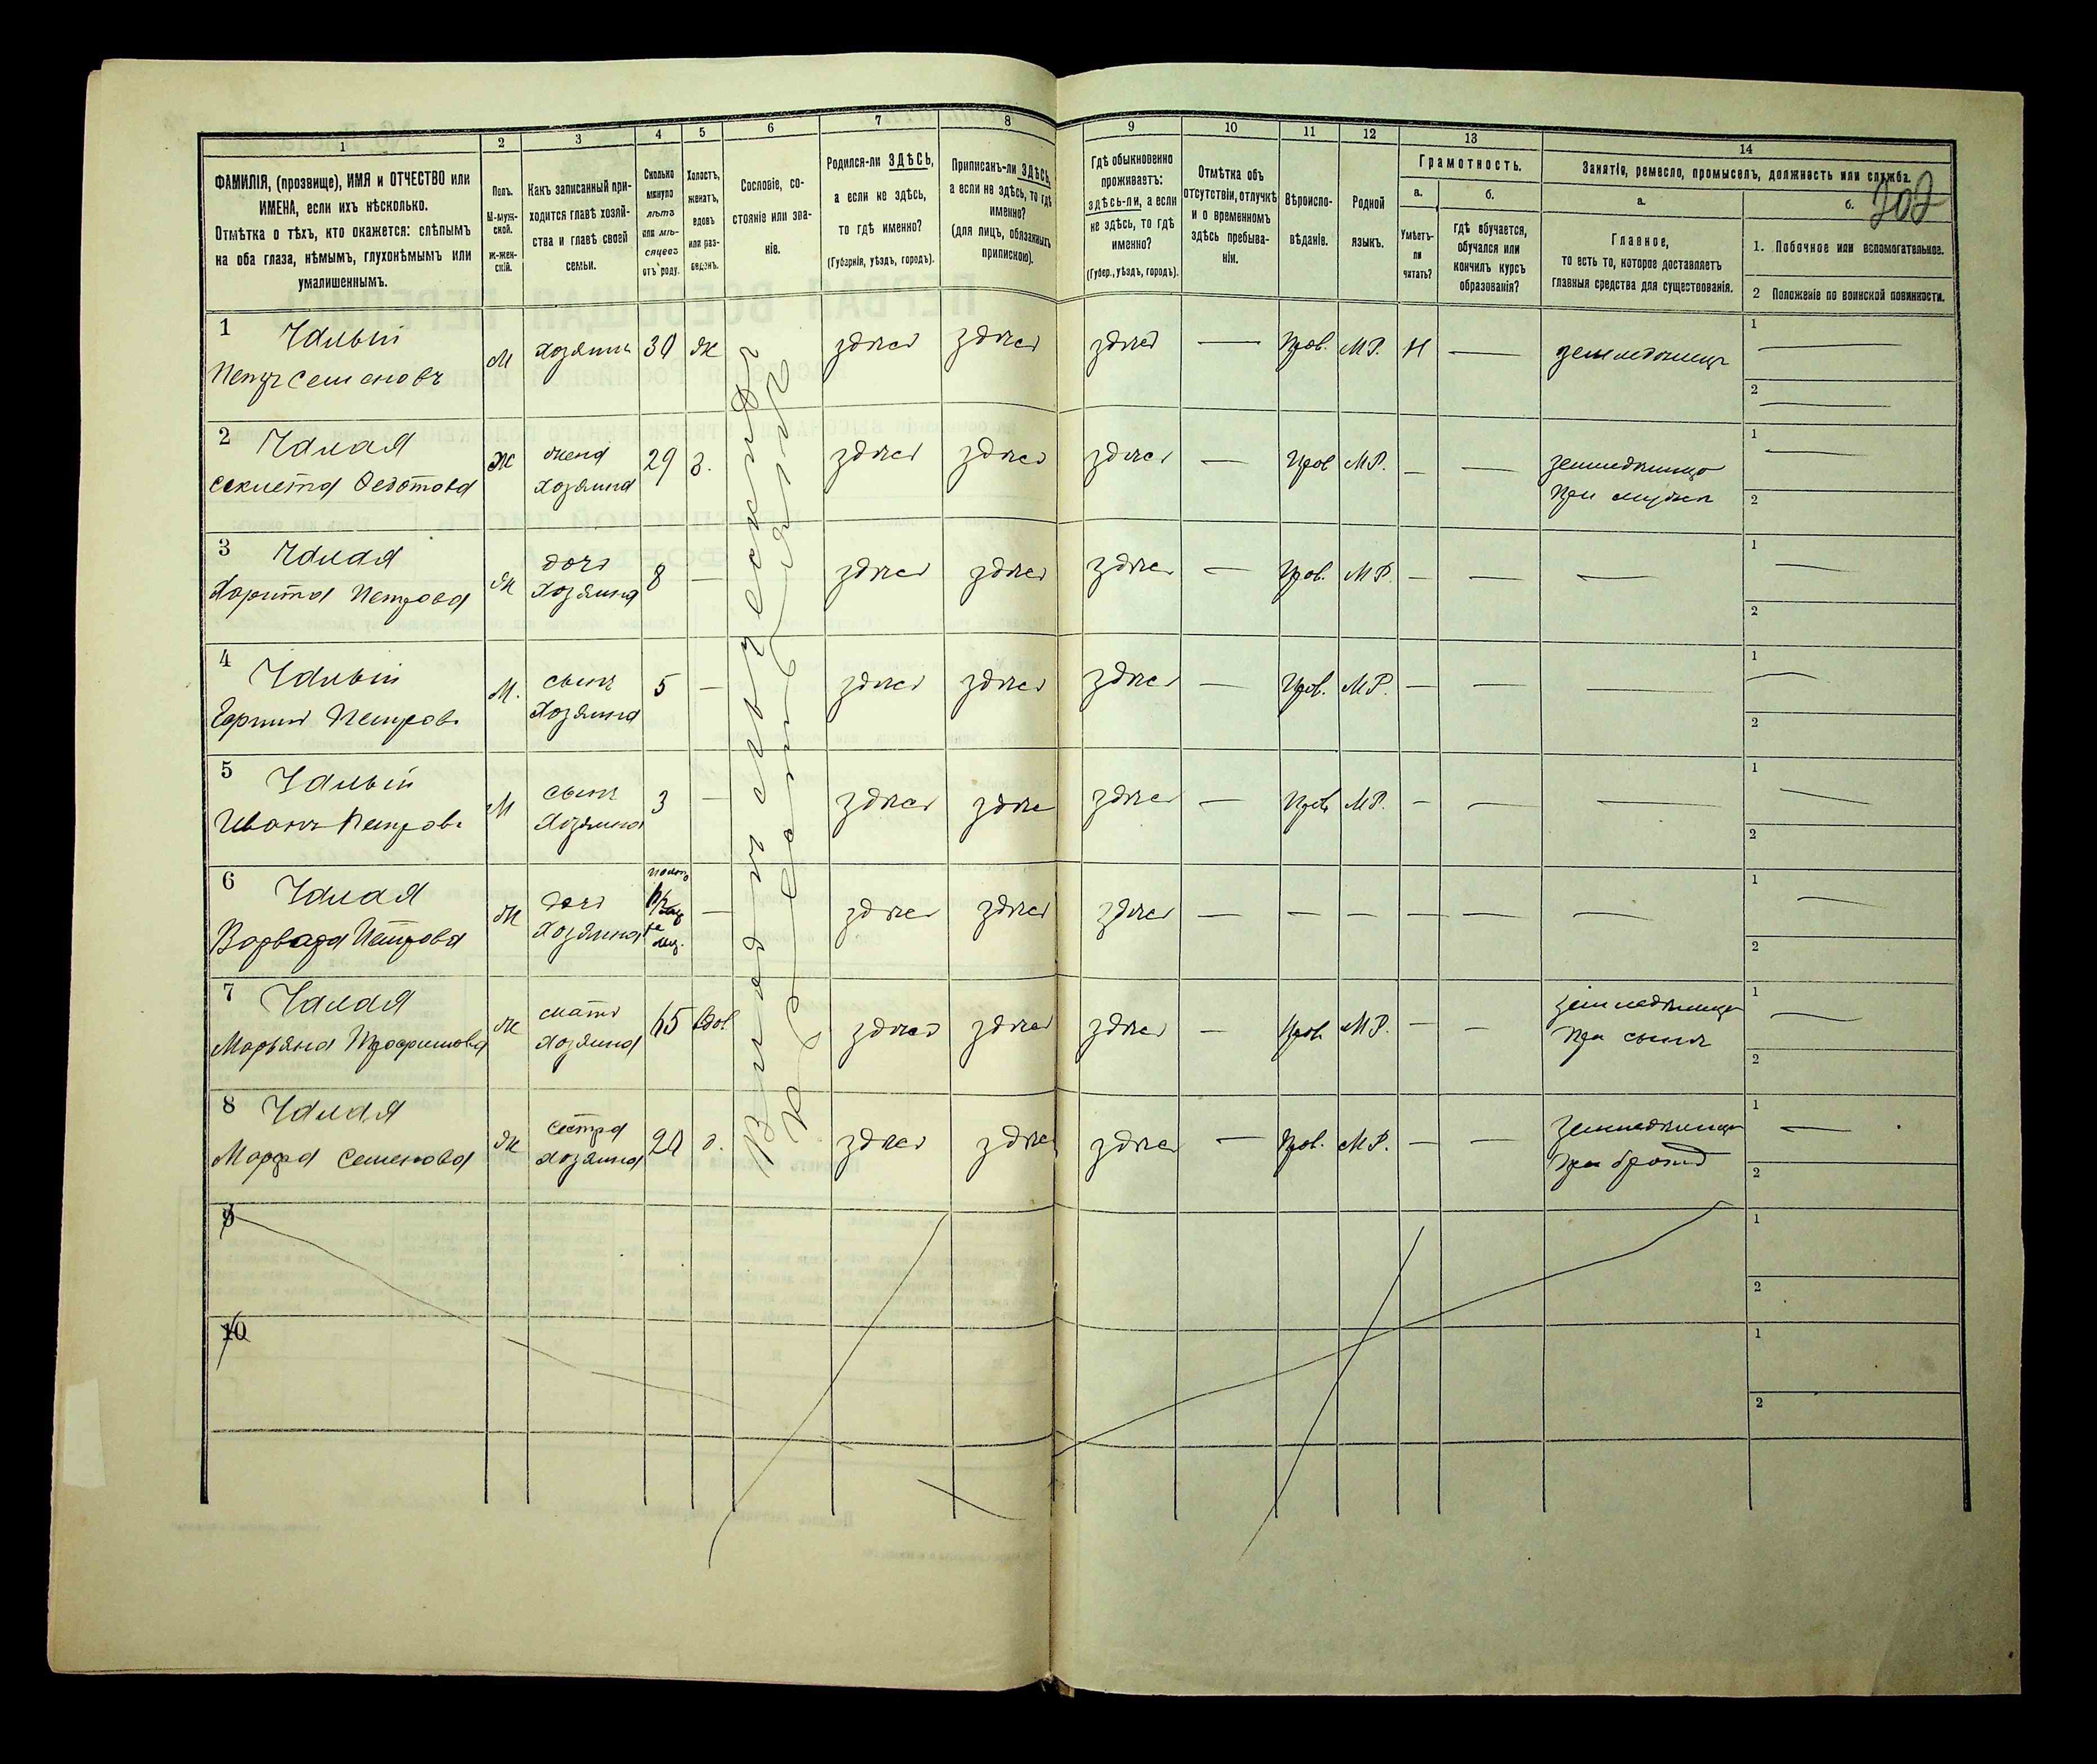 202
1 2 3 4 5 6 7 8 9 10 11 12 13 14
ФАМИЛІЯ, (прозвище), ИМЯ и ОТЧЕСТВО или
ИМЕНА, если ихъ нѣсколько.
Отмѣтка о тѣхъ, кто окажется: слѣпымъ
на оба глаза, нѣмымъ, глухонѣмымъ или
умалишеннымъ.
Полъ.
М-муж-
ской.
ж-жен-
скій.
Какъ записанный при-
ходится главѣ хозяй-
ства и главѣ своей
семьи.
Сколько
минуло
лѣтъ
или мѣ-
сяцевъ
отъ роду.
Холостъ,
женатъ,
вдовъ
или раз-
веденъ.
Сословіе, со-
стояніе или зва-
ніе.
Родился-ли ЗДѢСЬ,
а если не здѣсь,
то гдѣ именно?
(Губернія, уѣздъ, городъ).
Приписанъ-ли ЗДѢСЬ,
а если не здѣсь, то гдѣ
именно?
(для лицъ, обязанныхъ
припискою).
Гдѣ обыкновенно
проживаетъ:
здѣсь-ли, а если
не здѣсь, то гдѣ
именно?
(Губер., уѣздъ, городъ).
Отмѣтка объ
отсутствіи, отлучкѣ
и о временномъ
здѣсь пребыва-
ніи.
Вѣроиспо-
вѣданіе.
Родной
языкъ.
Грамотность.
а.
Умѣетъ-
ли
читать?
б.
гдѣ обучается,
обучался или
кончилъ курсъ
образованія?
Занятія, ремесло, промыселъ, должность или служба.
а.
Главное,
то есть то, которое доставляетъ
главныя средства для существованія.
б.
1. Побочное или вспомогательное.
2 Положеніе по воинской повинности.
1 Чалый
Петръ Семеновъ
М хозяинъ 30 ж здѣсь здѣсь здѣсь — Прав. М.Р. Н — земледѣлецъ
1 —
2 —
2 Чалая
Федотова
ж жена
хозяина
29 з. здѣсь здѣсь здѣсь — Прав М.Р. — —
при мужѣ
1 —
2
3 Чалая
Харита Петрова
ж дочь
хозяина
8 — здѣсь здѣсь здѣсь — Прав. М.Р. — — —
1 —
2
4 Чалый
Петров.
М. сынъ
хозяина
5 — здѣсь здѣсь здѣсь — Прав. М.Р. — — —
1 —
2
5 Чалый
Иванъ Петров.
М сынъ
хозяина
3 — здѣсь здѣсь здѣсь — Прав М.Р. — — —
1 —
2
6 Чалая
Варвара Петрова
ж дочь
хозяина
— здѣсь здѣсь здѣсь — — — — — —
1 —
2
7 Чалая
Марьяна Трофимова
ж мать
хозяина
65 Вдов. здѣсь здѣсь здѣсь — Прав М.Р. — —
при сынѣ
1 —
2
8 Чалая
Марфа Семенова
ж сестра
хозяина
20 д. здѣсь здѣсь здѣсь — Прав. М.Р. — —
при братѣ
1 —
2
9
1
2
10
1
2